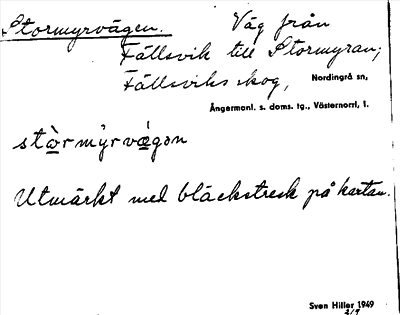 Stormyrvägen. Väg från
Fällsvik till Stormyran;
Fällsviks skog, Nordingrå sn,
Ångermanl. s. doms. tg., Västernorrl, l.
stòrmyrvägən
Utmärkt med bläckstreck på kartan.
Sven Hiller 1949
2/9